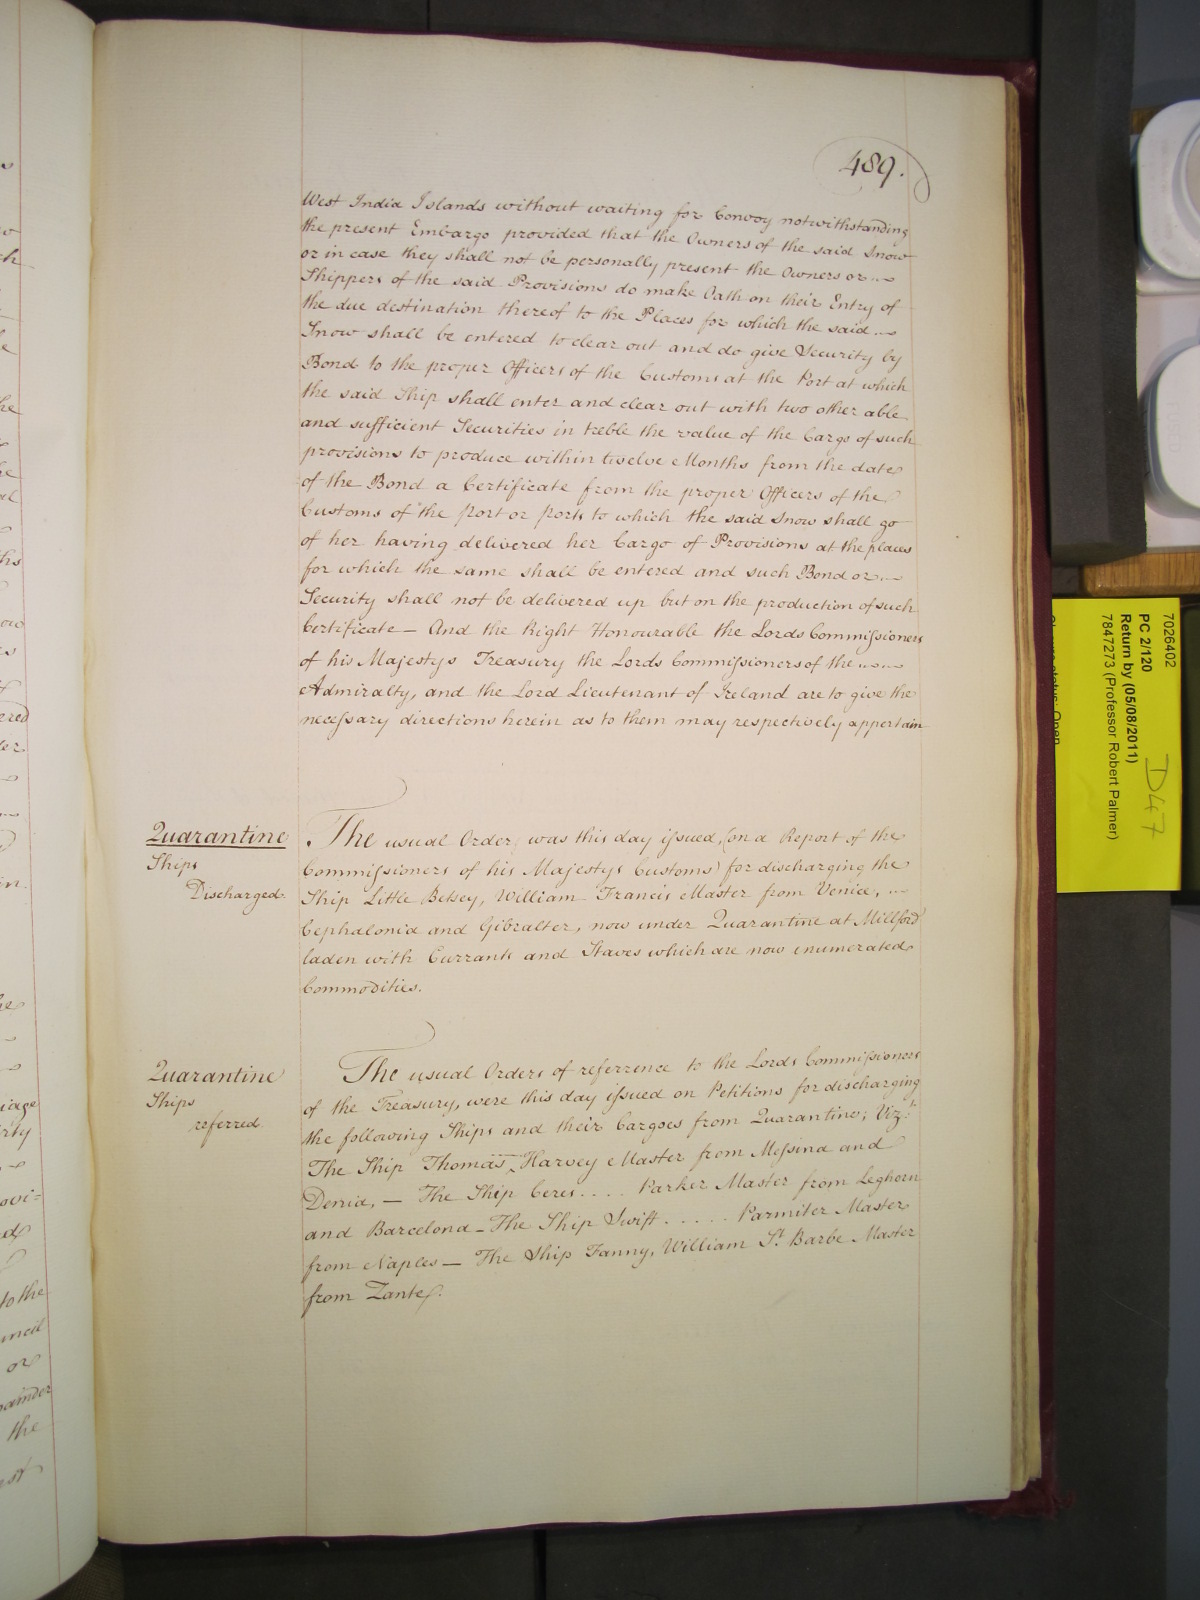 489.
West India Islands without waiting for Convoy notwithstanding
the present Embargo provided that the Owners of the said Snow
or in case they shall not be personally present the Owners or
Shippers of the said Provisions do make Oath on their Entry of
the due destination thereof to the Places for which the said
Snow shall be entered to clear out and do give Security by
Bond to the proper Officers of the Customs at the Port at which
the said Ship shall enter and clear out with two other able
and sufficient Securities in treble the value of the Cargo of such
provisions to produce within twelve Months from the date
of the Bond a Certificate from the proper Officers of the
Customs of the Port or Ports to which the said Snow shall go
of her having delivered her Cargo of Provisions at the places
for which the same shall be entered and such Bond or
Security shall not be delivered up but on the production of such
Certificate — And the Right Honourable the Lords Commissioners
of his Majestys Treasury the Lords Commissioners of the
Admiralty, and the Lord Lieutenant of Ireland are to give the
necessary directions herein as to them may respectively appertain
Quarantine
Ships
Discharged.
The usual Order, was this day issued, (on a Report of the
Commissioners of his Majestys Customs) for discharging the
Ship Little Betsey, William Francis Master from Venice,
Cephalonia and Gibralter, now under Quarantine at Millford
laden with Currants and Staves which are now enumerated
Commodities.
Quarantine
Ships
referred.
The usual Orders of referrence to the Lords Commissioners
of the Treasury, were this day issued on Petitions for discharging
the following Ships and their Cargoes from Quarantine; Vizt.
The Ship Thomas, Harvey Master from Messina and
Denia, — The Ship Ceres .... Parker Master from Leghorn
and Barcelona — The Ship Swift ..... Parmiter Master
from Naples — The Ship Fanny, William St. Barbe Master
from Zante.
7026402
PC 2/120
Return by (05/08/2011)
7847273 (Professor Robert Palmer)
D47